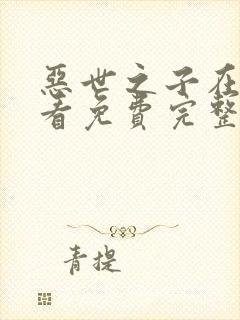 惡世之子在
看免費完整
青提